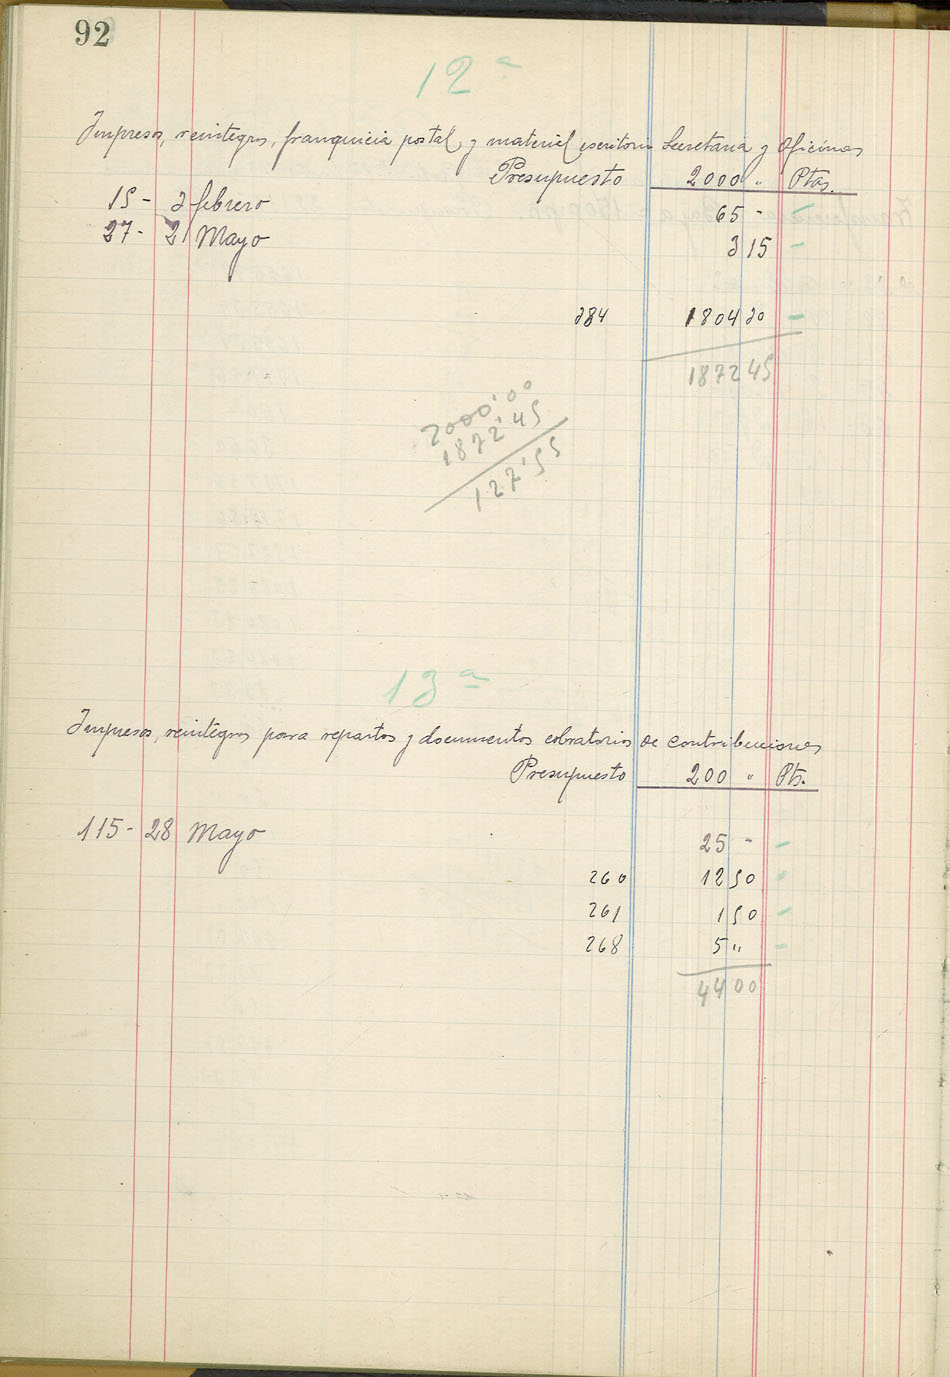 92
12ª
Impresos, reintegros, franquicia postal y material escritorio Secretaria y Oficinas
Presupuesto 2000 " Ptas.
15 - 2 febrero 65 - -
27 - 21 Mayo 3 15 -
284 1804 30 -
1872 45
2000'00
1872'45
127'55
13ª
Impresos, reintegros para repartos y documentos cobratorios de contribuciones
Presupuesto 200 " Pts.
115 - 28 Mayo 25 - -
260 12 50 -
261 1 50 -
268 5 " -
44 00